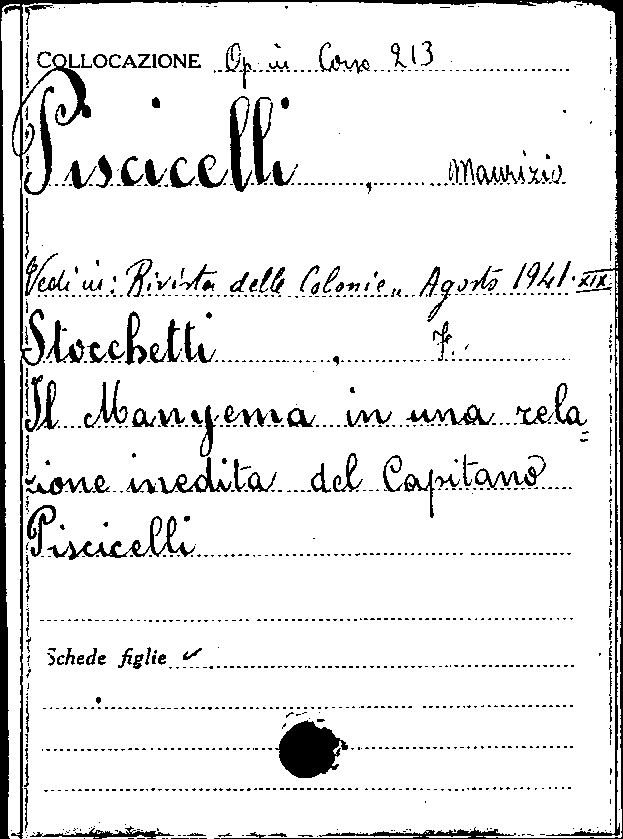 COLLOCAZIONE Op. in Corso 213
Piscicelli, Maurizio
Vedi in: Rivista delle Colonie„ Agosto 1941·XIX
Stocchetti, F.
Il Manyema in una rela=
zione inedita del Capitano
Piscicelli
Schede figlie ✓